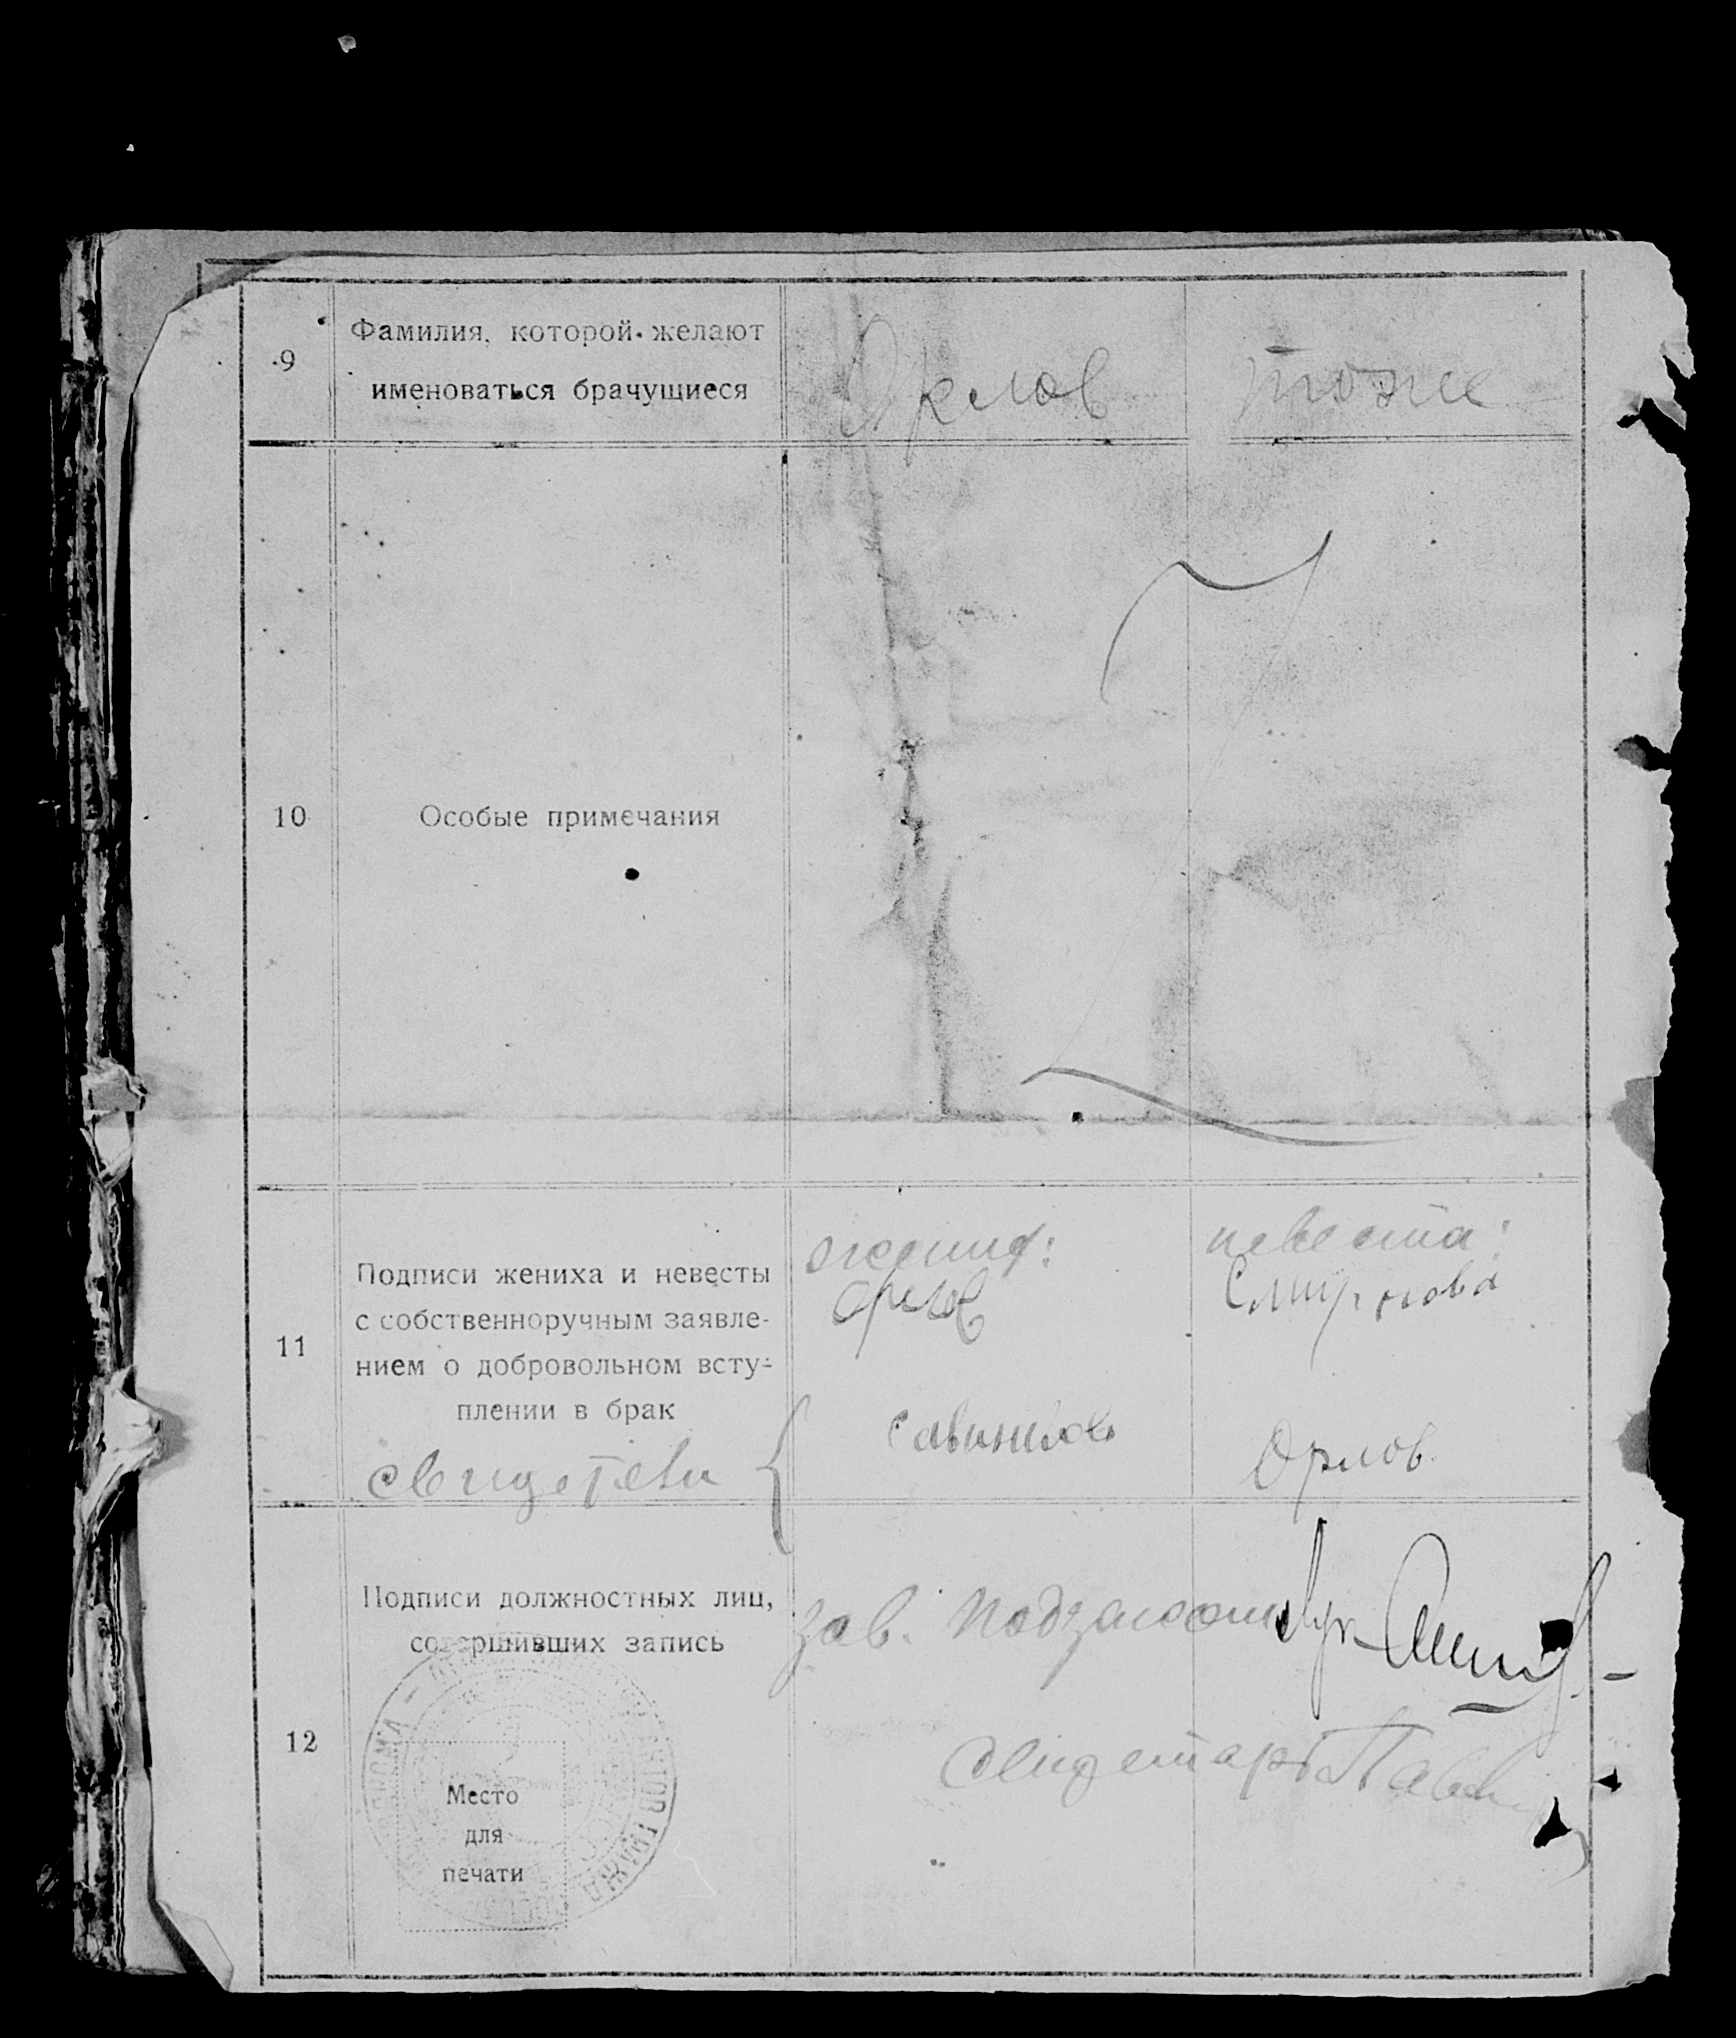 9
Фамилия, которой желают
именоваться брачущиеся
Орлов
тоже
10
Особые примечания
11
Подписи жениха и невесты
с собственноручным заявле-
нием о добровольном всту-
плении в брак
свидетели
жених:
Орлов
невеста:
Смирнова
Орлов.
12
Подписи должностных лиц,
совершивших запись
зав.
Место
для
печати